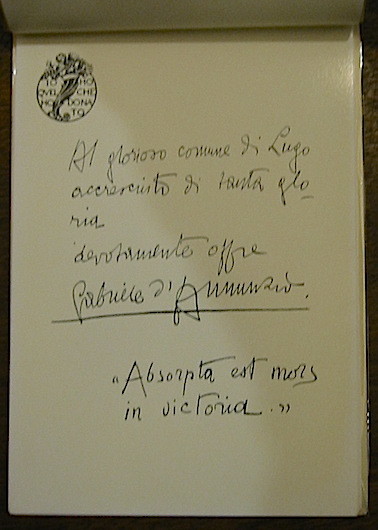 IO HO
QVEL CHE
HO DONA
TO
Al glorioso comune di Lugo
accresciuto di tanta glo-
ria
devotamente offre
Gabriele d'Annunzio.
"Absorpta est mors
in victoria."